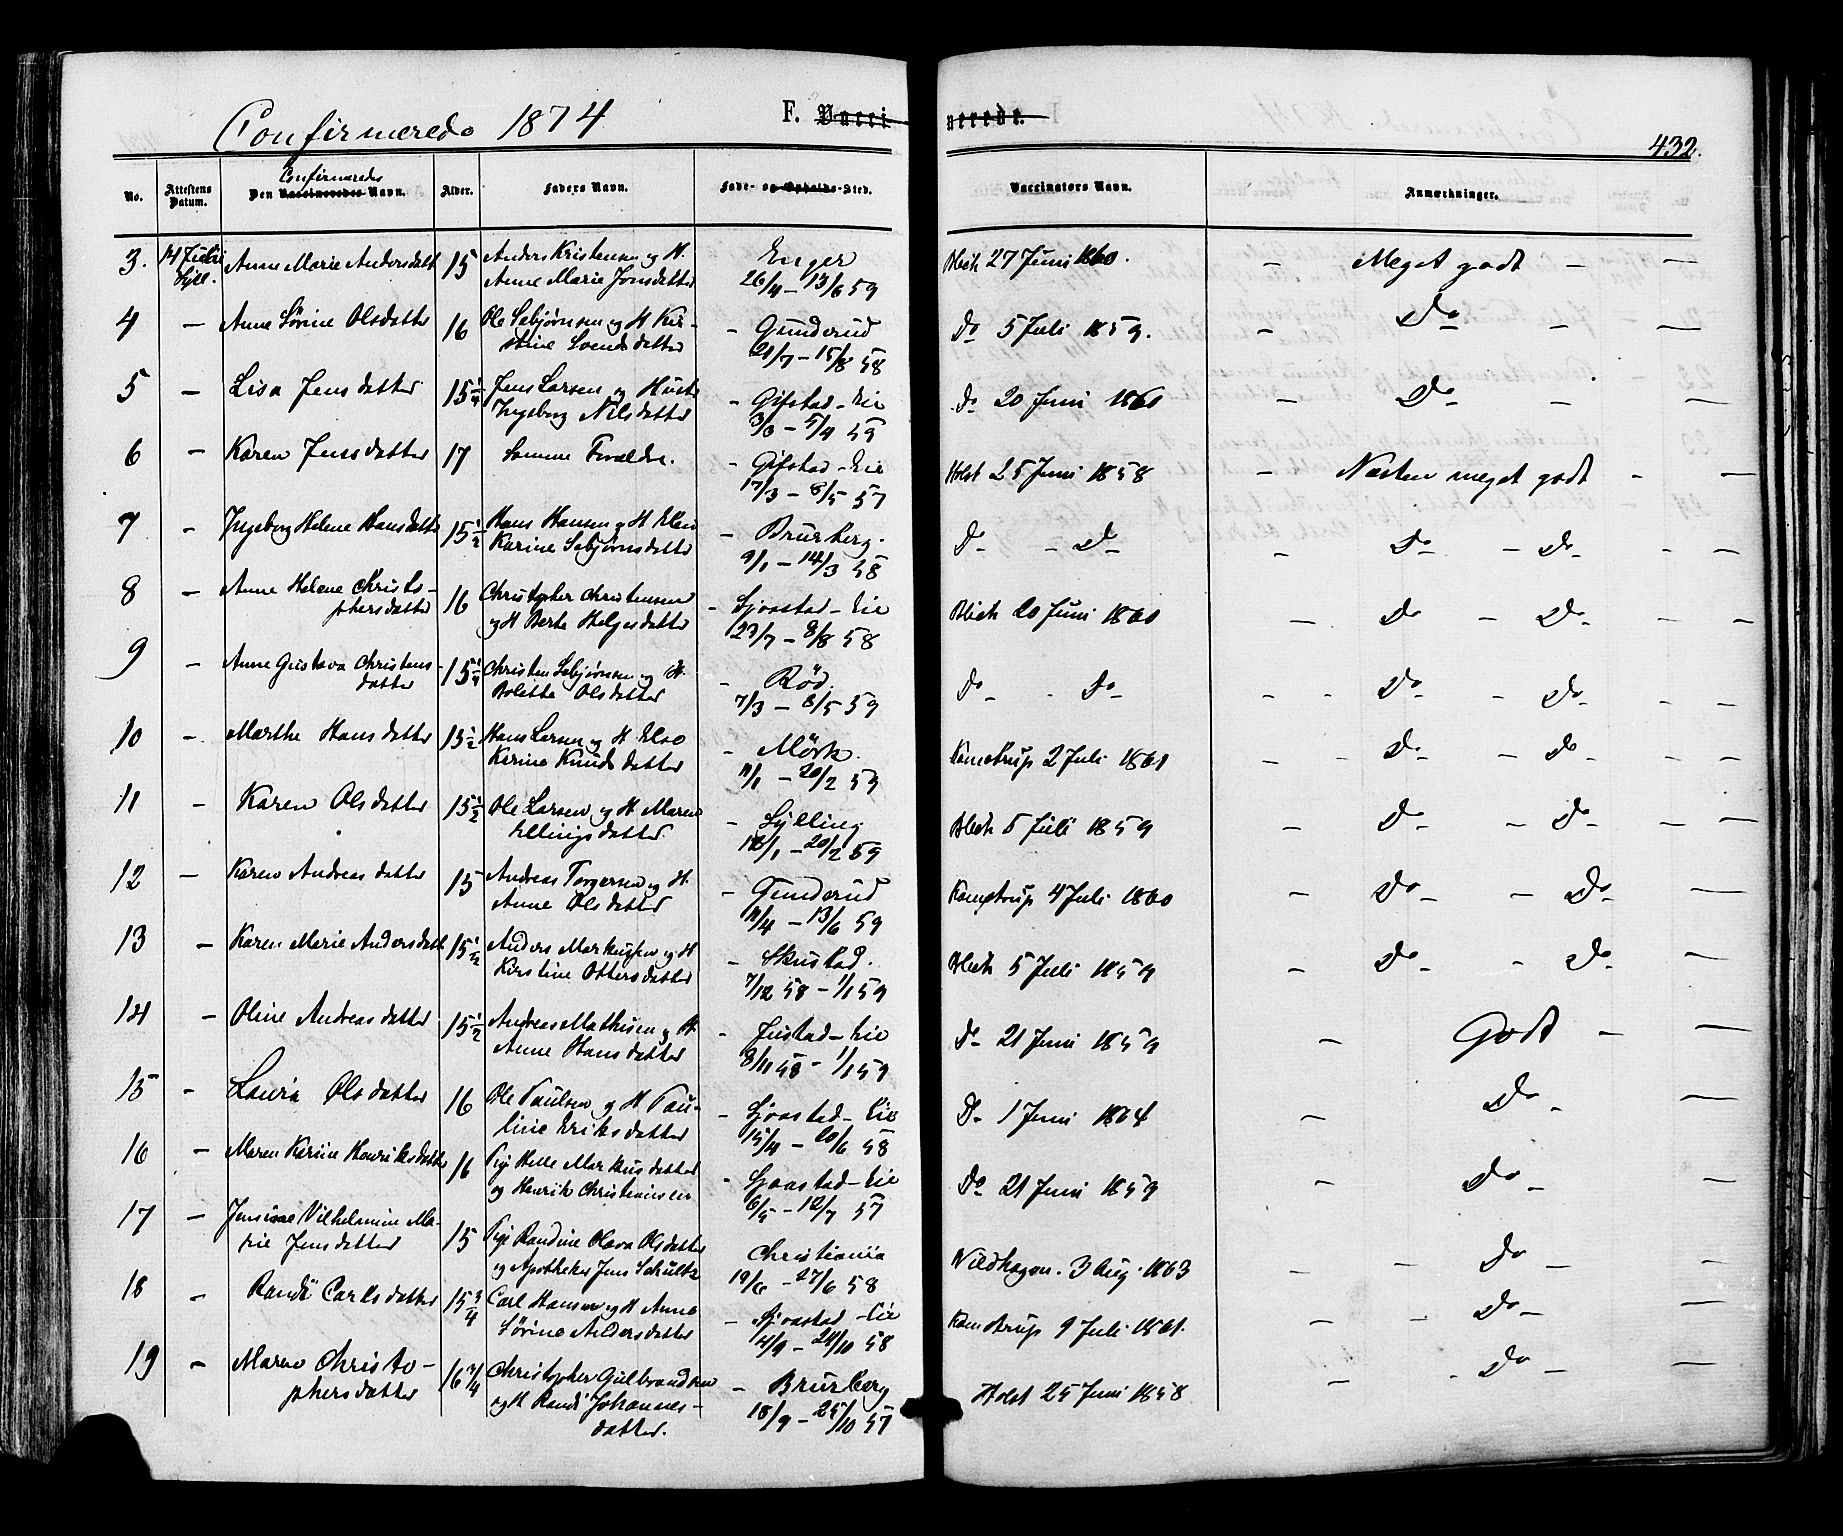 Confirmerede 1874 F. Vaccinerede. 432.
No. Attestens Datum. Den Vaccineredes Confirmeredes Navn. Alder. Faders Navn. Føde- og Opholds-Sted. Vaccinators Navn. Anmærkninger.
3. 14 Juli Anne Marie Andersdatt 15 Anders Kristensen og H. Enger Blich 27 Juni 1860. — Meget godt — —
Syll. Anne Marie Jonsdatter 26/4 — 13/6 59
4 — Anne Sørine Olsdatter 16 Ole Sebjørnsen og H Kir- — Gunderud Do 5 Juli 1859. — Do — —
stine Svendsdatter 21/7 — 15/8 58
5 — Lisa Jensdatter 15 1/4 Jens Larsen og Hustr — Gifstad — Eie Do 20 Juni 1860 — Do — —
Ingeborg Nilsdatter 3/3 — 5/4 59
6 — Karen Jensdatter 17 Samme Forældre. — Gifstad — Eie Holst 25 Juni 1858 — Næsten meget godt — —
17/3 — 8/5 57
7 — Ingeborg Helene Hansdatter 15 1/2 Hans Hansen og H Elen — Brurberg. Do — Do — — Do — Do — —
Karine Sebjørnsdatter 9/1 — 14/3 58
8 — Anne Helene Christo- 16 Christopher Christensen — Sjaastad — Eie Blich 20 Juni 1860 — Do — Do — —
phersdatter og H Berte Helgesdatter 23/7 — 8/8 58
9 — Anne Gustava Christens- 15 1/4 Christen Sebjørnsen og H. — Rød. Do — Do — — Do — Do — —
datter Bolette Olsdatter 7/3 — 8/5 59
10 — Marthe Hansdatter 15 1/2 Hans Larsen og H Else — Mörk. Kamstrup 2 Juli 1861 — Do — Do — —
Karine Knudsdatter 11/1 — 20/2 59
11 — Karen Olsdatter 15 1/2 Ole Larsen og H Maren — Sylling Blich 5 Juli 1859 — Do — Do — —
Ellingsdatter. 12/1 — 20/2 59
12 — Karen Andreasdatter 15 Andreas Torgersen og H. — Gunderud Kamstrup 4 Juli 1860 — Do — Do —
Anne Olsdatter 11/4 — 13/6 59
13 — Karen Marie Andersdatt 15 1/2 Anders Markussen og H — Skustad. Blich 5 Juli 1859 — Do — Do — —
Kirstine Ottersdatter 7/12 58 — 1/1 59
14 — Oline Andreasdatter 15 1/2 Andreas Mathisen og H. — Justad — Eie Do 21 Juni 1859 — Godt — —
Anne Hansdatter 8/11 58 — 1/1 59
15 — Laura Olsdatter 16 Ole Paulsen og H Pau- — Sjaastad — Eie Do 1 Juni 1864 — Do — —
line Eriksdatter 15/4 — 20/6 58
16 — Maren Karine Henriksdatter 16 Pige Helle Markusdatter — Sjaastad — Eie Do 21 Juni 1859 — Do — —
og Henrik Christiansen 6/5 — 12/7 57
17 — Jensine Vilhelmine Ma- 15 Pige Randine Olava Olsdatter Christiania Wildhagen. 3 Aug. 1863 — Do — —
rie Jensdatter og Apotheker Jens Schultz 19/6 — 27/6 58
18 — Randi Carlsdatter 15 3/4 Carl Hansen og H Anne — Sjaastad — Eie Kamstrup 9 Juli 1861. — Do — —
Sørine Andersdatter 4/9 — 24/10 58
19 — Maren Christo- 16 3/4 Christopher Gulbrandsen — Brurberg Holst 25 Juni 1858 — Do — —
phersdatter og H Randi Johannes- 18/9 — 25/10 57
datter.